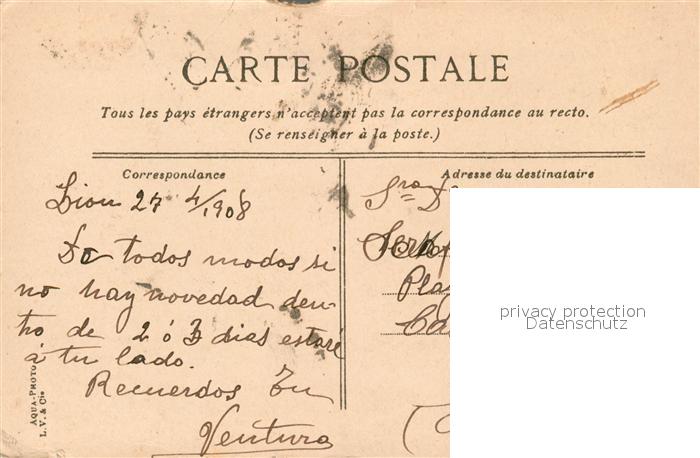 CARTE POSTALE
Tous les pays étrangers n'acceptent pas la correspondance au recto.
(Se renseigner à la poste.)
Correspondance
Adresse du destinataire
Lion 27 4/1908
De todos modos si
no hay novedad den-
tro de 2 ó 3 dias estaré
á tu lado.
Recuerdos Tu
Ventura
Sra
Pla
AQUA-PHOTO
L.V. & Cie
privacy protection
Datenschutz